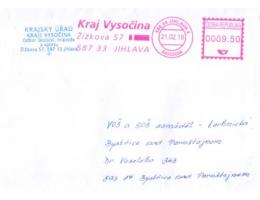 KRAJSKÝ ÚŘAD
KRAJE VYSOČINA
Odbor školství, mládeže
a sportu
Žižkova 57, 587 33 Jihlava
Kraj Vysočina
Žižkova 57
587 33 JIHLAVA
21.02.18
ČESKÁ REPUBLIKA
0009,50
VOŠ a SOŠ zemědělsko - technická
Bystřice nad Pernštejnem
Dr. Veselého 343
593 01 Bystřice nad Pernštejnem